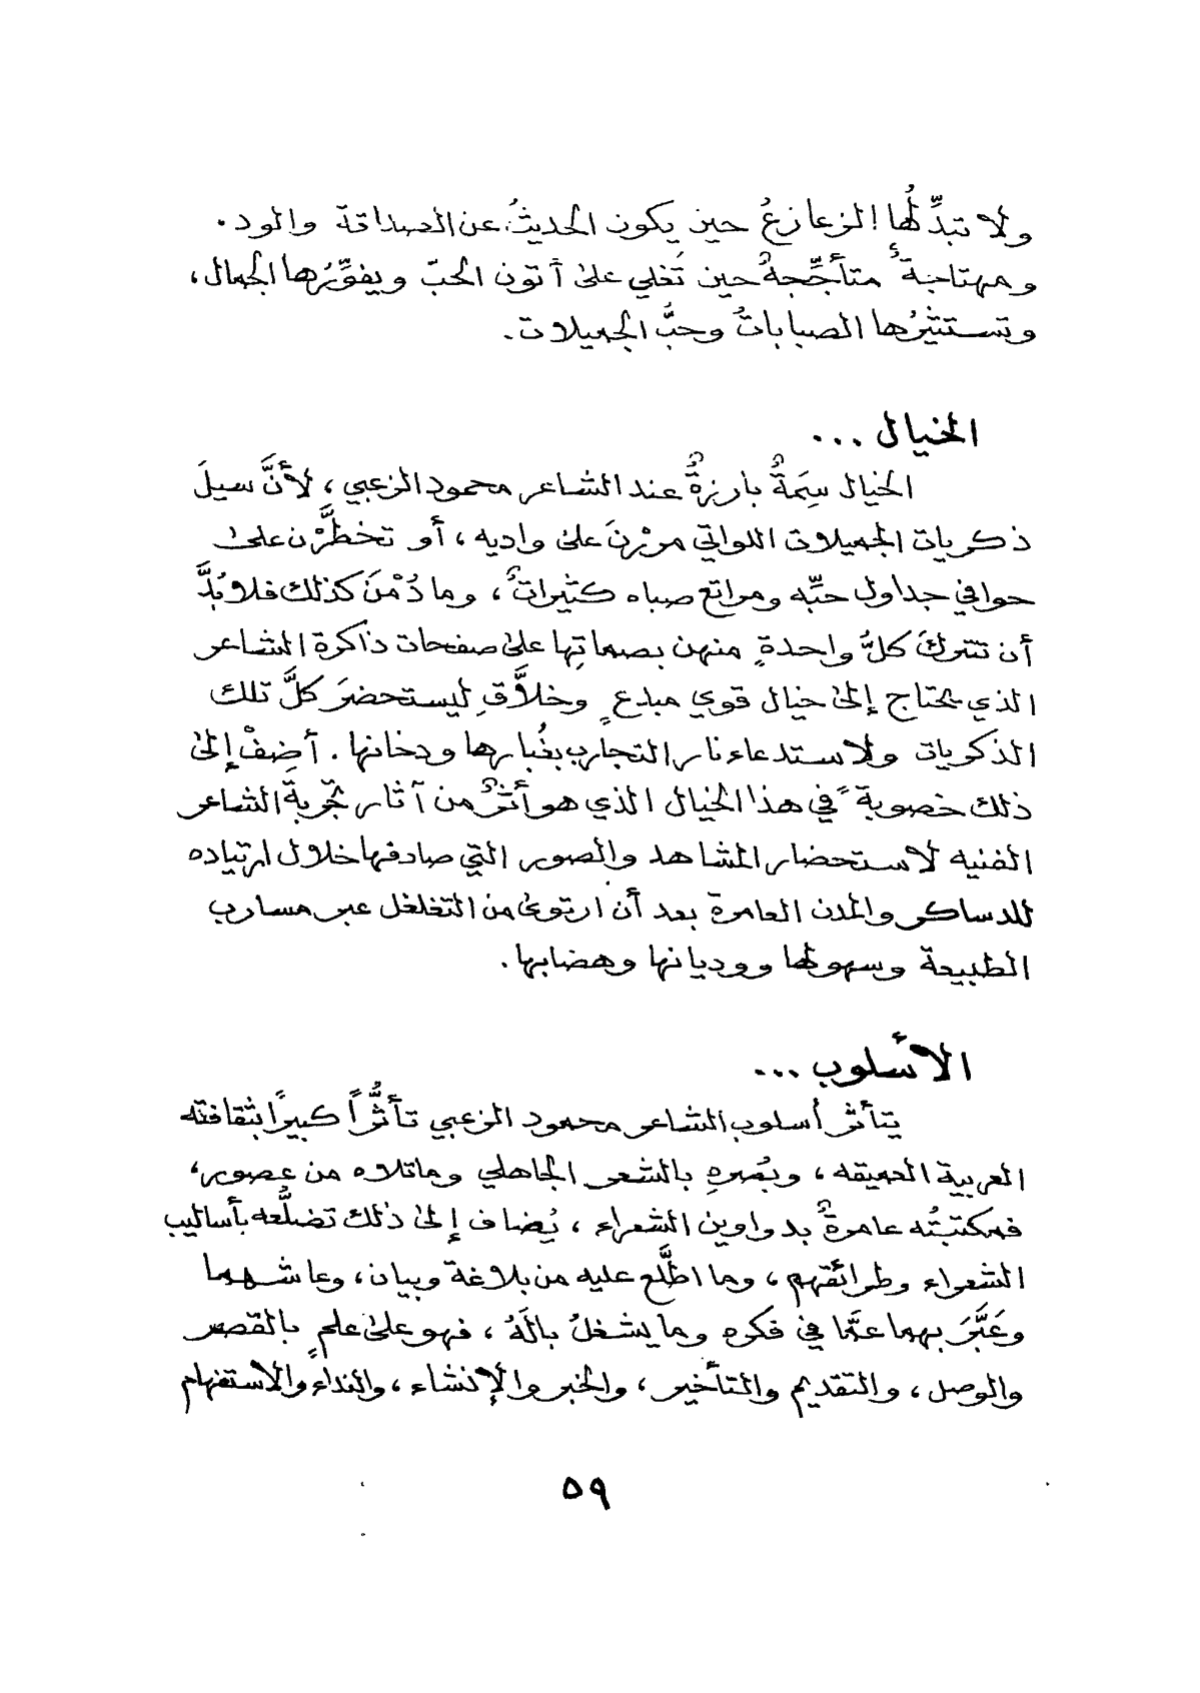 ولا تبدِّلُها الزعازعُ حين يكون الحديثُ عن الصداقة والود.
ومهتاجةٌ متأجِّجةٌ حين تَغلي على أتون الحبّ ويفوِّرُها الجمال،
وتستثيرُها الصباباتُ وحبُّ الجميلات.
الخيال ...
الخيال سِمَةٌ بارزةٌ عند الشاعر محمود الزعبي، لأنَّ سيلَ
ذكريات الجميلات اللواتي مررْنَ على واديه، أو تخطَّرْن على
حوافي جداول حبِّه ومراتع صباه كثيراتٌ، وما دُمْنَ كذلك فلا بُدَّ
أن تتركَ كلُّ واحدةٍ منهن بصماتِها على صفحات ذاكرة الشاعر
الذي يحتاج إلى خيال قوي مبدعٍ وخلاَّقٍ ليستحضرَ كلَّ تلك
الذكريات ولاستدعاء نار التجارب بغُبارها ودخانها. أضِفْ إلى
ذلك خصوبةً في هذا الخيال الذي هو أثرٌ من آثار تجربةِ الشاعر
الفنيه لاستحضار المشاهد والصور التي صادفها خلال ارتياده
للدساكر والمدن العامرة بعد أن ارتوى من التغلغل عبر مسارب
الطبيعة وسهولها ووديانها وهضابها.
الأسلوب ...
يتأثر أسلوب الشاعر محمود الزعبي تأثُّراً كبيرًا بثقافته
العربية العميقه، وبَصرهِ بالشعر الجاهلي وما تلاه من عصور،
فمكتبتُه عامرةٌ بدواوين الشعراء، يُضاف إلى ذلك تضلُّعه بأساليب
الشعراء وطرائقهم، وما اطَّلع عليه من بلاغة وبيان، وعاشهما
وعَبَّرَ بهما عمَّا في فكره وما يشغلُ بالَهُ، فهو على علمٍ بالقصر
والوصل، والتقديم والتأخير، والخبر والإنشاء، والنداء والاستفهام
٥٩